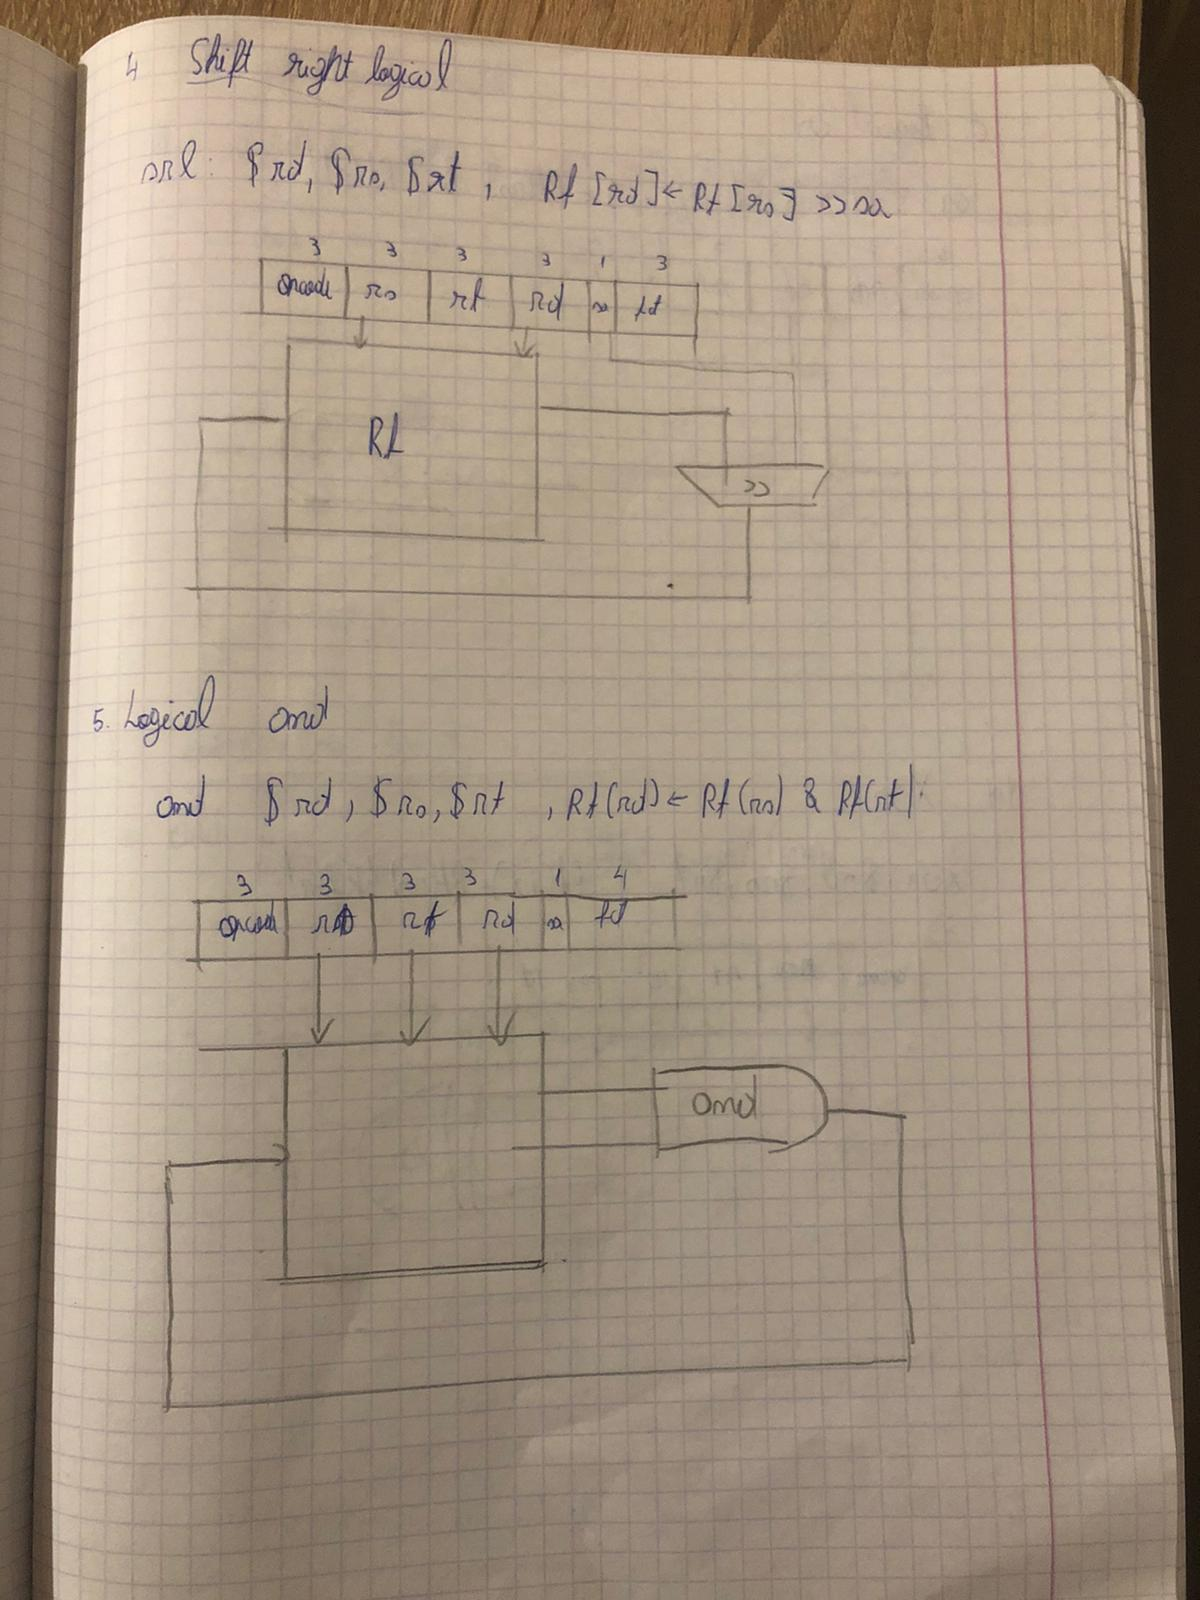 4 Shift right logical
srl: $rd, $rs, $rt, Rf[rd] ← Rf[rs] >> sa
3 3 3 3 1 3
opcode rs rt rd sa fct
Rf
>>
5. Logical and
and $rd, $rs, $rt, Rf(rd) ← Rf(rs) & Rf(rt)
3 3 3 3 1 4
opcode rs rt rd sa fct
and